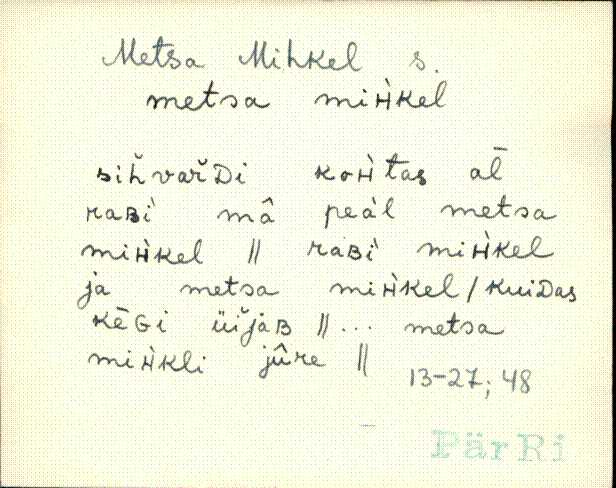 Metsa Mihkel s.
metsa miʜ̀kel
siȟvařᴅi koʜ̀tas al̄
raʙì mâ peàl metsa
miʜ̀kel || raʙì miʜ̀kel
ja metsa miʜ̀kel / kuiᴅas
kēɢi üǐjaʙ || ... metsa
miʜ̀kli jûre ||
13-27; 48
PärRi